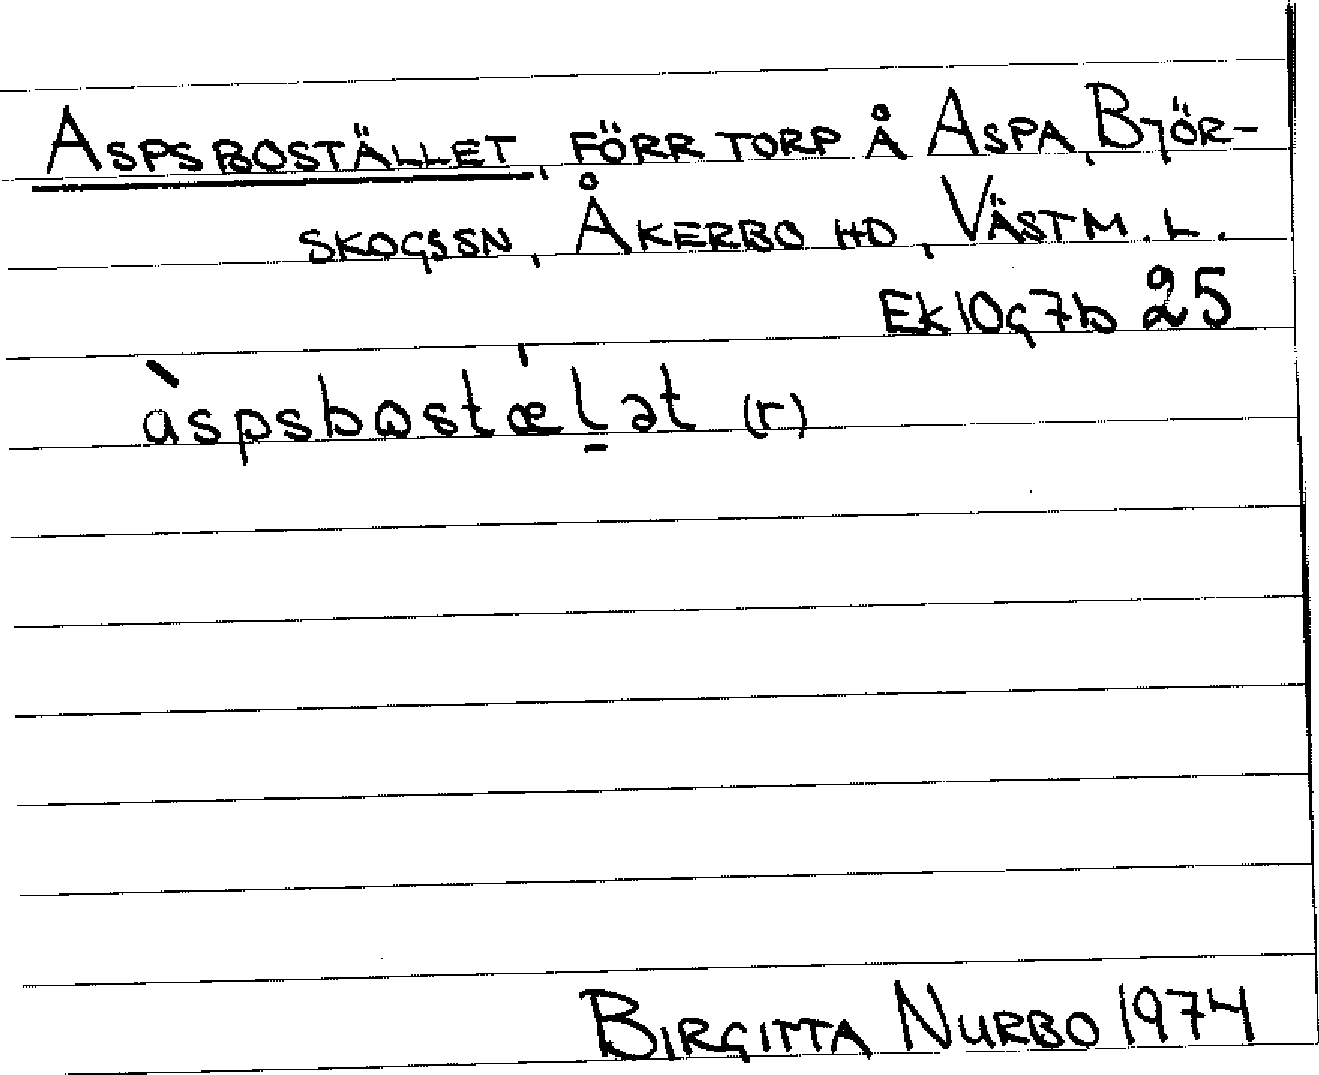 ASPSBOSTÄLLET, FÖRR TORP Å ASPA, BJÖR-
SKOGSSN, ÅKERBO HD, VÄSTM. L.
Ek 10g7b 25
àspsbɷstæ̍l̠ət (r)
BIRGITTA NURBO 1974